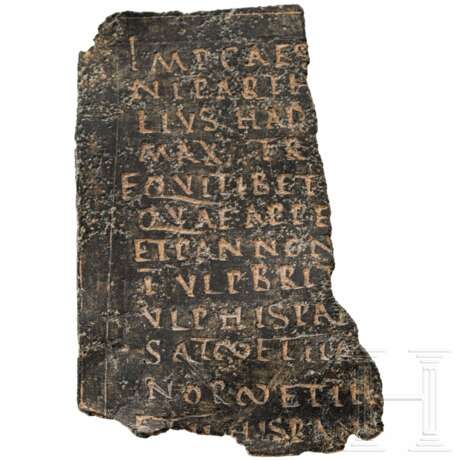 IMP CAES
NI PARTH
LIVS HAD
MAX TR
EQVITIB ET
QVAE APPE
ET PANNON
I VLP BRI
VLP HISPA
SAT ∞ ET II
NOR ∞ ET I H
HISPA